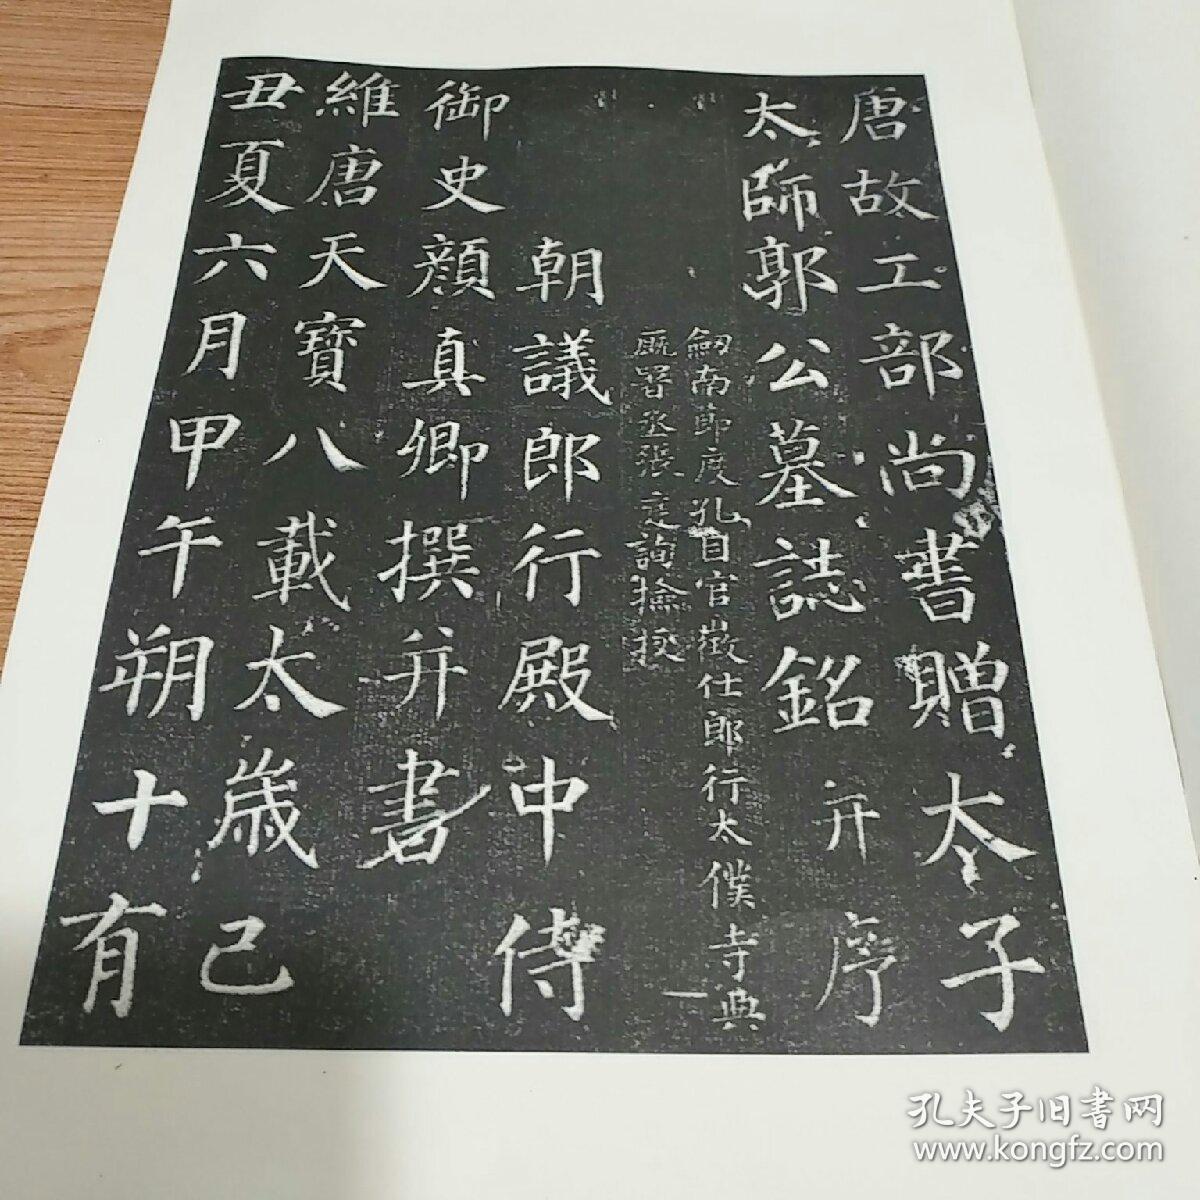 唐故工部尚書贈太子
太師郭公墓誌銘并序
劒南節度孔目官徵仕郎行太僕寺典
廄署丞張庭詢撿挍
朝議郎行殿中侍
御史顔真卿撰并書
維唐天寶八載太歳己
丑夏六月甲午朔十有
孔夫子旧书网
www.kongfz.com